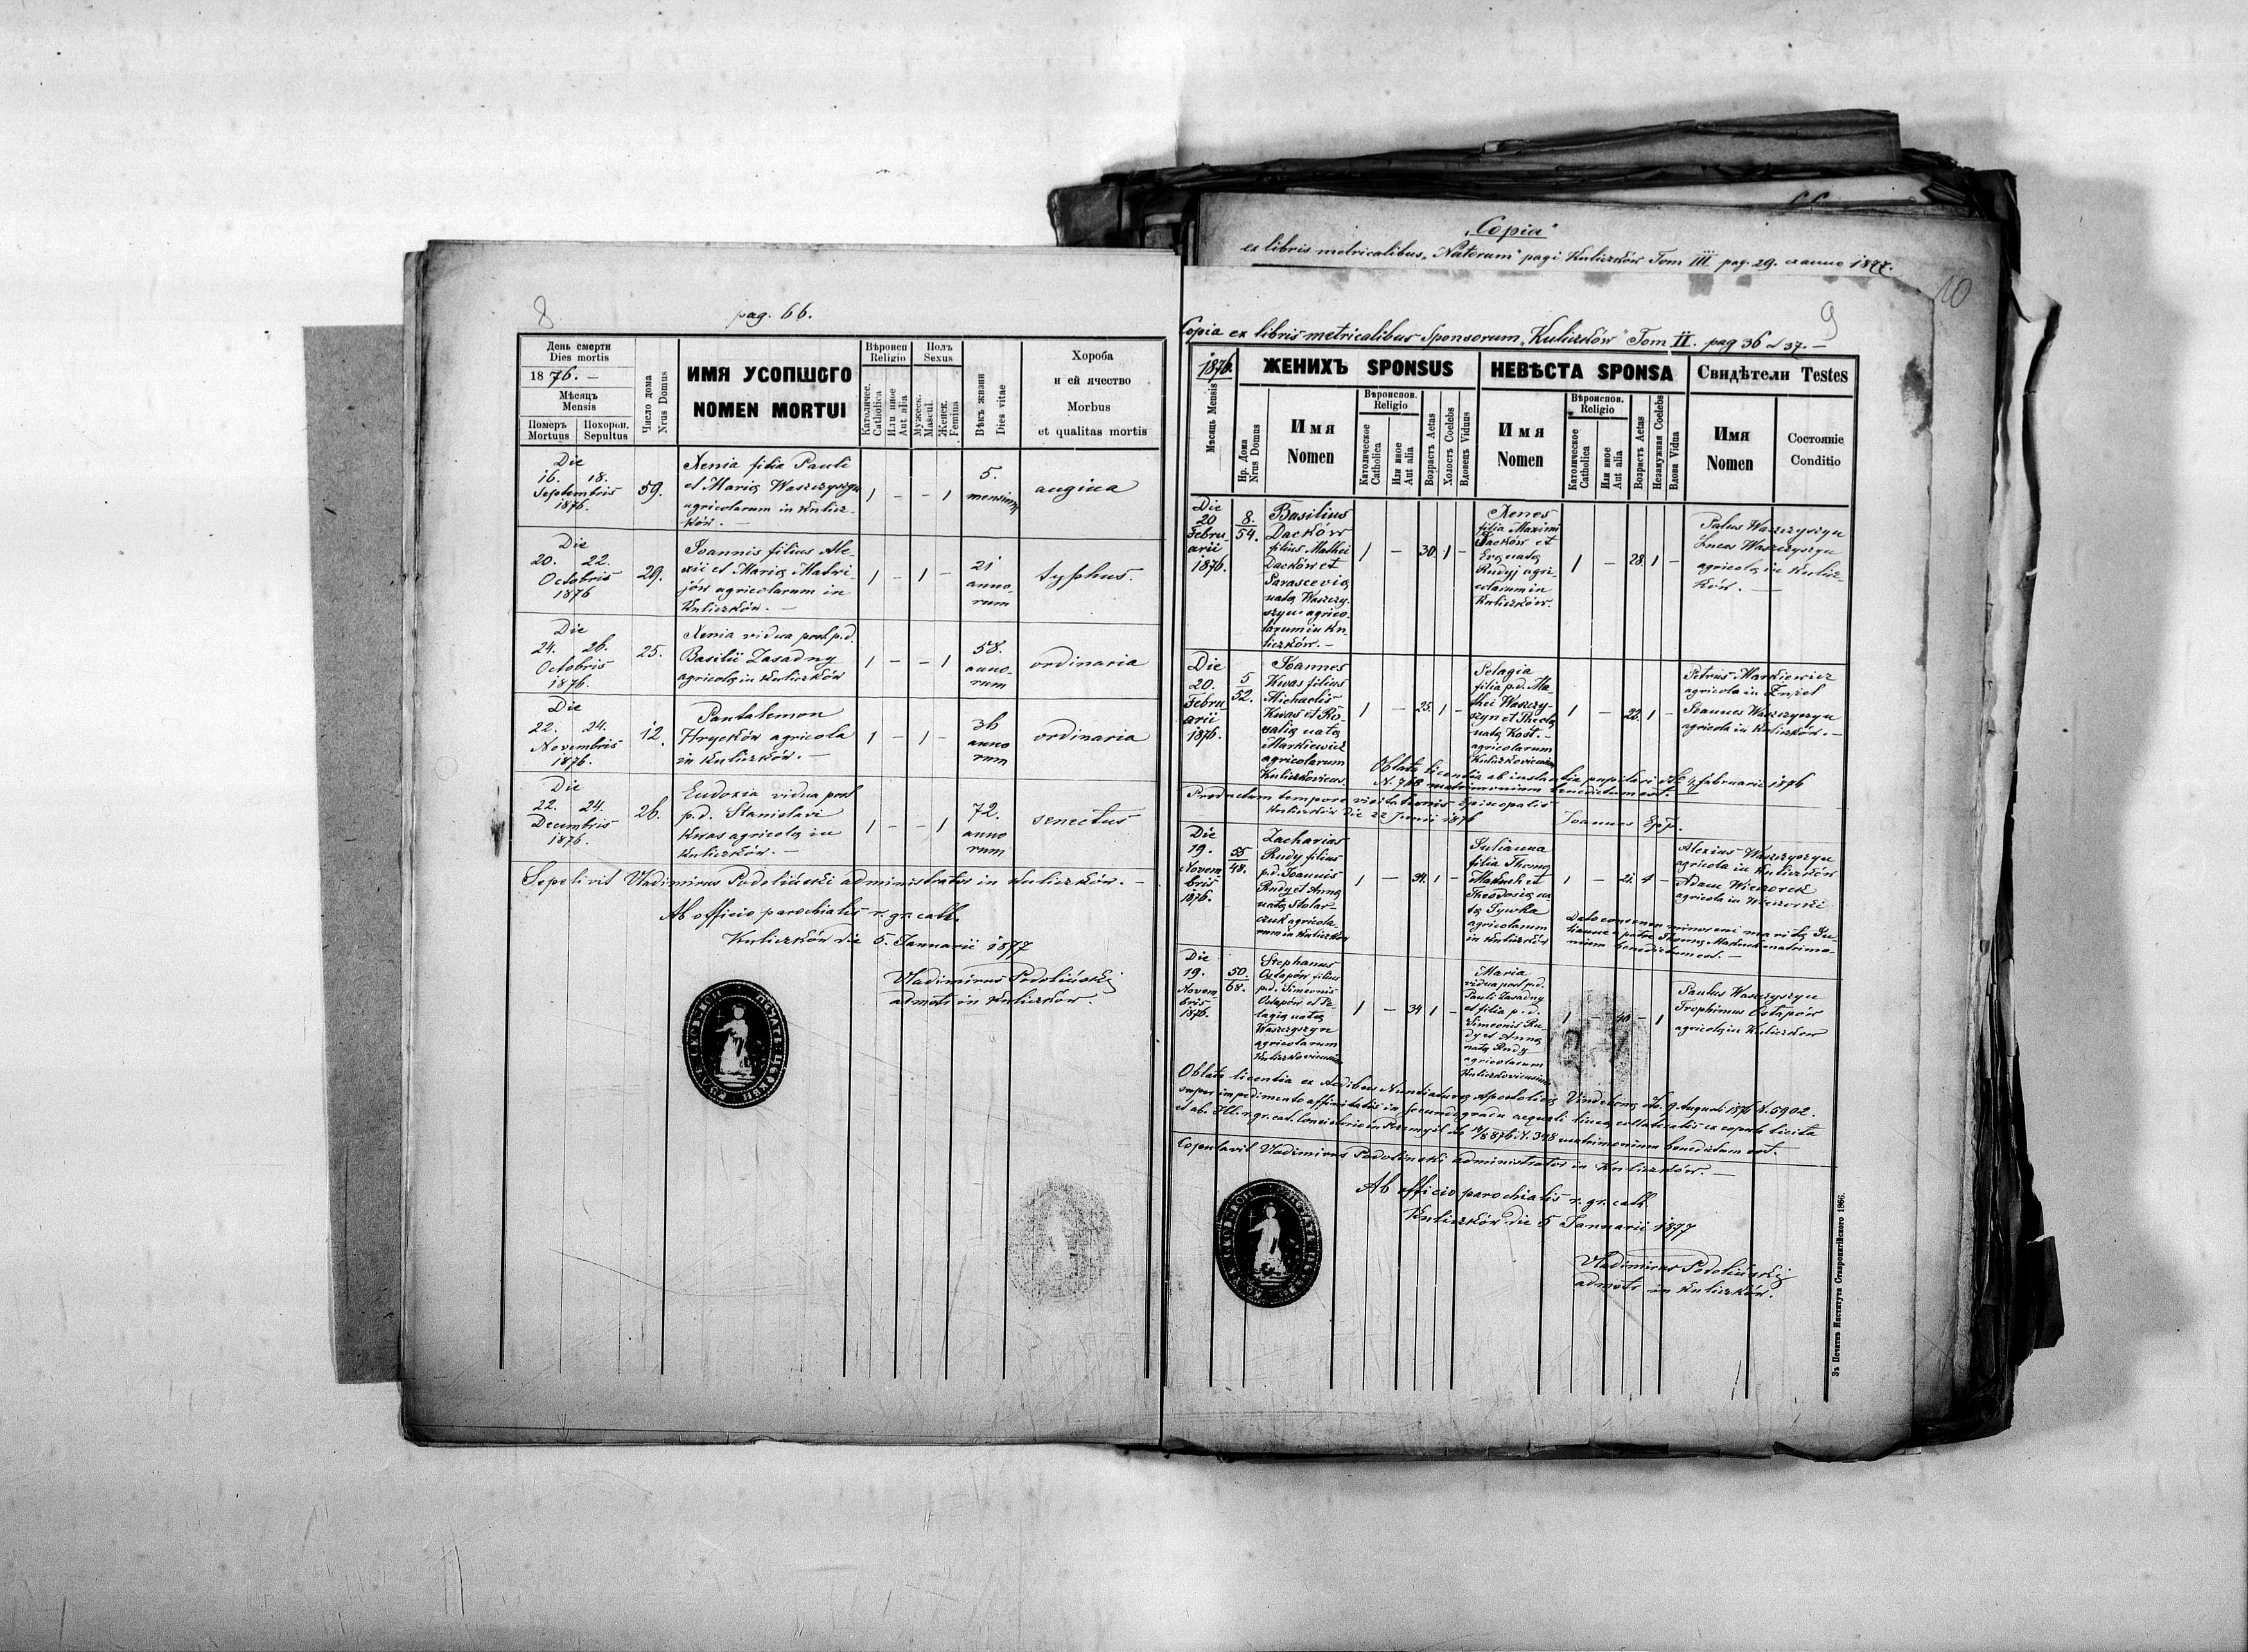 8
pag. 66.
День смерти
Dies mortis
1876. —
Мѣсяцъ
Mensis
Померъ
Mortuus
Похорон.
Sepultus
Число дома
Nrus Domus
ИМЯ УСОПШОГО
NOMEN MORTUI
Вѣроисп
Religio
Католичес.
Catholica
Или иное
Aut alia
Полъ
Sexus
Мужеск.
Mascul.
Женск.
Femina
Вѣкъ жизни
Dies vitae
Хороба
и ей ячество
Morbus
et qualitas mortis
Die
16. 18.
Septembris
1876.
59.
Xenia filia Pauli
et Marię Waszczyszyn
agricolarum in Kulicz-
ków. —
1 – – 1
5.
mensium
angina
Die
20. 22.
Octobris
1876
29.
Joannis filius Ale-
xii et Marię Matwi-
jów agricolarum in
Kuliczków. —
1 – 1 –
21
anno-
rum
typhus.
Die
24. 26.
Octobris
1876.
25.
Xenia vidua post p.d.
Basilii Zasadny
agricolę in Kuliczków
1 – – 1
58.
anno-
rum
ordinaria
Die
22. 24.
Novembris
1876.
12.
Pantalemon
Hryćków agricola
in Kuliczków. —
1 – 1 –
36
anno
rum
ordinaria
Die
22. 24.
Decembris
1876.
26.
Eudoxia vidua post
p.d. Stanislavi
Kwas agricolę in
Kuliczków. —
1 – – 1
72.
anno
rum
senectus
Sepelivit Vladimirus Podoliński administrator in Kuliczków. —
Ab officio parochialis r. gr. cath.
Kuliczków die 5. Januarii 1877
Vladimirus Podoliński
admstr in Kuliczków.
„Copia"
ex libris metricalibus „Natorum" pagi Kuliczków Tom III pag. 29. ex anno 1877.
10
9
Copia ex libris metricalibus Sponsorum „Kuliczków" Tom II. pag 36 et 37. —
1876.
Мѣсяць Mensis
ЖЕНИХЪ SPONSUS
Нр. Дома
Nrus Domus
Имя
Nomen
Вѣроиспов.
Religio
Католическое
Catholica
Или иное
Aut alia
Возрастъ Aetas
Холостъ Coelebs
Вдовецъ Viduus
НЕВѢСТА SPONSA
Имя
Nomen
Вѣроиспов.
Religio
Католическое
Catholica
Или иное
Aut alia
Возрастъ Aetas
Незамужная Coelebs
Вдова Vidua
Свидѣтели Testes
Имя
Nomen
Состояніе
Conditio
Die
20
Febru-
arii
1876.
8.
54.
Basilius
Daćków
filius Mathei
Daćków et
Parascevię
natę Waszczy-
szyn agrico-
larum in Ku-
liczków. —
1 – 30. 1 –
Xenes
filia Maximi
Daćków et
Evę natę
Rudyj agri-
colarum in
Kuliczków.
1 – 28. 1 –
Waszczyszyn
Lucas Waszczyszyn
agricolę in Kulicz-
ków. —
Die
20.
Febru-
arii
1876.
5
52.
Joannes
Kwas filius
Michaelis
Kwas et Ro-
salię natę
Markiewicz
agricolarum
Kuliczkovicus.
1 – 25. 1 –
Pelagia
filia p.d. Ma-
thei Waszczy-
szyn et Theclę
natę Kost. —
agricolarum
1 – 22. 1 –
Petrus Markiewicz
agricola in
Joannes Waszczyszyn
agricola in Kuliczków. —
Oblata licentia ab instantia pupilari dto 4 februarii 1876
N. 768 matrimonium benedictum est.
Productum tempore visitationis episcopalis
Kuliczków die 22 Junii 1876
Joannes Epp.
Die
19.
Novem
bris
1876.
55
48.
Zacharias
Rudy filius
p.d. Joannis
Rudy et Annę
natę Stolar-
czuk agricola-
rum in Kuliczków
1 – 34. 1 –
Julianna
filia Thomę
et
Theodosię na-
tę
agricolarum
in Kuliczków
1 – 21. 1 –
Alexius Waszczyszyn
agricola in Kuliczków
Adam Wieczorek
agricola in
Dato consensu minoreni maritę Ju-
liannę a patre Thomę matrimo-
nium benedictum est. —
Die
19.
Novem
bris
1876.
50.
68.
Stephanus
Ostapów filius
p.d. Simeonis
Ostapów et Pe-
lagię natę
Waszczyszyn
agricolarum
1 – 34 1 –
Maria
vidua post p.d.
Pauli Zasadny
et filia p.d.
Simeonis Ru-
dy et Annę
natę Rudy
agricolarum
1 – 40 – 1
Paulus Waszczyszyn
Trophimus Ostapów
agricolę in Kuliczków
Oblata licentia ex Aedibus Nuntiaturę Apostolicę Vindobonę dto. 9 Augusti 1876 N. 5902.
super impedimento affinitatis in secundo gradu aequali lineę collateralis ex copula licita
et ab Ill. r. gr. cat. Consistorio in Przemyśl dto N. 348 matrimonium benedictum est. —
Copulavit Vladimirus Podoliński administrator in Kuliczków. —
Ab officio parochialis r. gr. cath.
Kuliczków die 5 Januarii 1877
Vladimirus Podoliński
admstr in Kuliczków.
Зъ Печатнѣ Института Ставропигійского 1866.